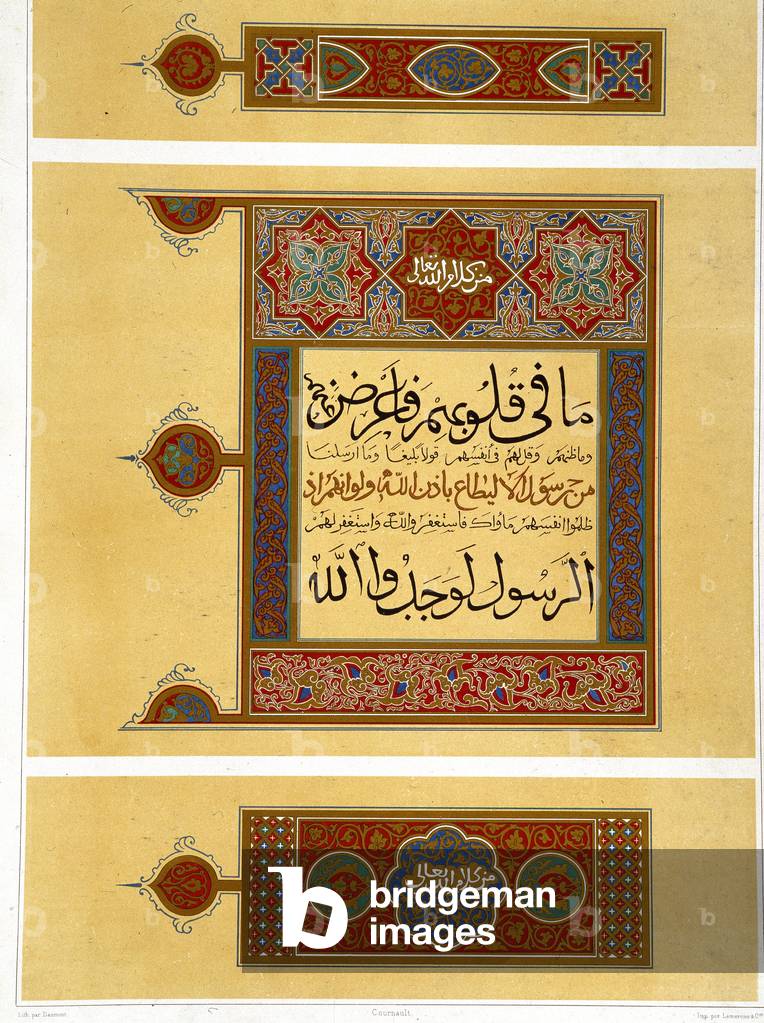 من كلام الله تعالى
ما فى قلُوبهِم فاَعرِض عنهم
وقلهم فى أنفسهم قولاً بليغاً وما ارسلنا
من رسول الا ليطاع باذن الله ولو انهم اذ
ظلموا انفسهم فاستغفروا الله واستغفر لهم
الرَّسُول لَوَجَدُوا اللَّه
من كلام الله تعالى
bridgeman
images
Lith. par Daumont. Cournault. Imp. par Lemercier & Cie